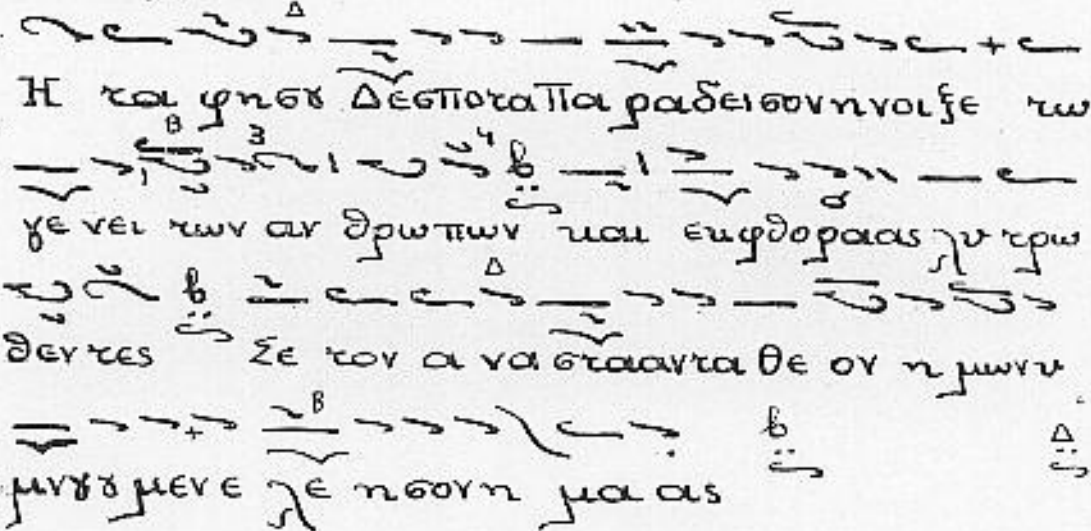 Η τα φησȣ Δεσποτα Πα ραδεισονηνοιξε τω
γε νει των αν θρωπων και εκφθοραας λυ τρω
θεντες Σε τον α να στααντα θε ον η μωνυ
μνȣȣ μεν ε λε ησονη μα ας